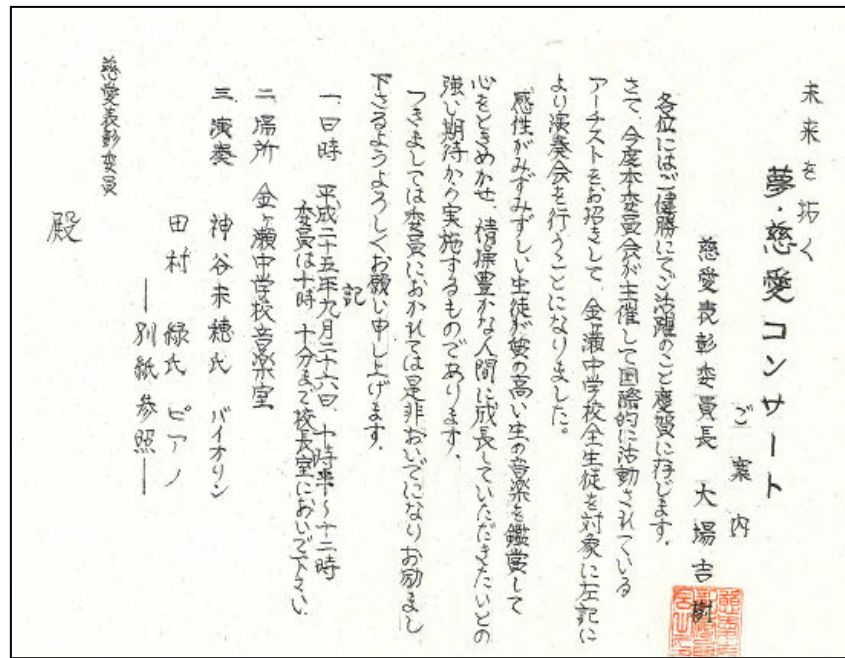 未来を拓く
夢・慈愛コンサート
ご案内
慈愛表彰委員長 大場吉樹
各位にはご健勝にてご活躍のこと慶賀に存じます。
さて、今度本委員会が主催して国際的に活動されている
アーチストをお招きして、金ヶ瀬中学校全生徒を対象に左記に
より演奏会を行うことになりました。
感性がみずみずしい生徒が質の高い生の音楽を鑑賞して
心をときめかせ、情操豊かな人間に成長していただきたいとの
強い期待から実施するものであります。
つきましては委員におかれては是非おいでになりお励まし
下さるようよろしくお願い申し上げます。
記
一、日時 平成二十五年九月二十六日、十時半～十二時
委員は十時 十分まで校長室においで下さい
二 場所 金ヶ瀬中学校音楽室
三 演奏 神谷未穂氏 バイオリン
田村 緑氏 ピアノ
―別紙参照―
慈愛表彰委員
殿